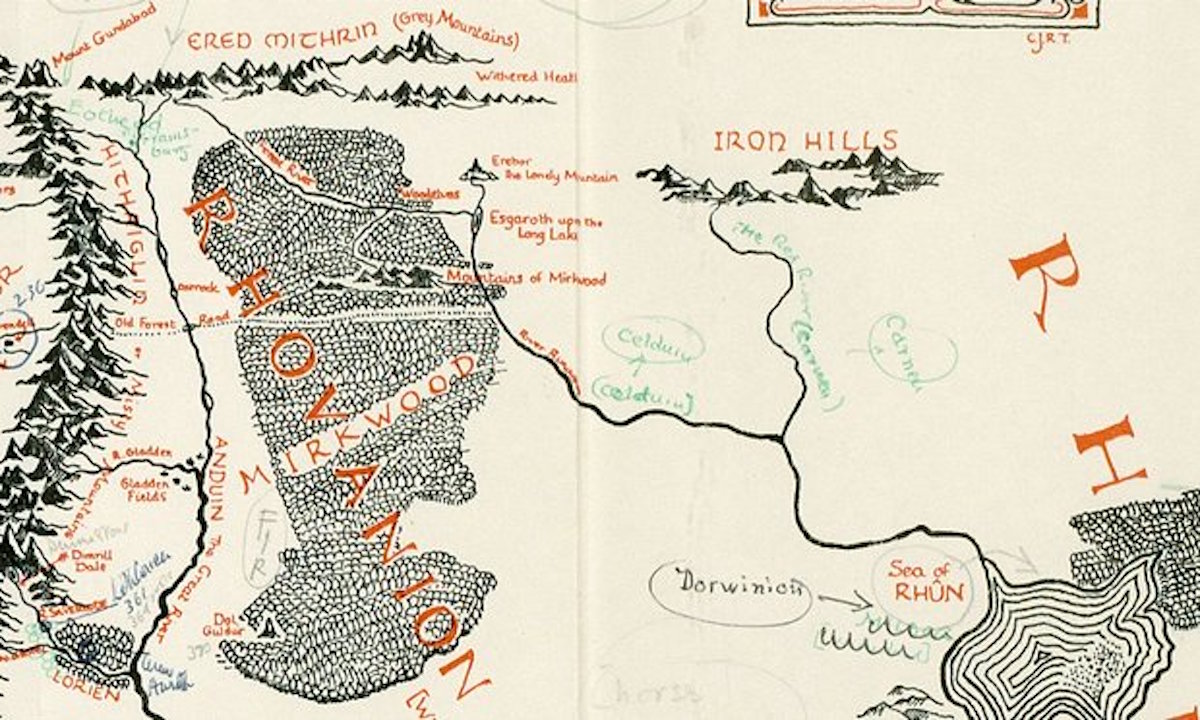 Mount Gundabad
ERED MITHRIN (Grey Mountains)
Withered Heath
C.J.R.T.
IRON HILLS
HITHAEGLIR
Forest River
Woodelves
Erebor
the Lonely Mountain
Esgaroth upon the
Long Lake
Mountains of Mirkwood
Carrock
Old Forest Road
or Misty
Mountains
RHOVANION
MIRKWOOD
River Running
Celduin
(Celduin)
The Red River (Carnen)
Carnen
R H
R. Gladden
Gladden
Fields
ANDUIN The Great River
Dimrill
Dale
Lothlorien
361
R. Silverlode
LORIEN
Dol
Guldur
390
FIR
Dorwinion
Sea of
RHÛN
horse
236